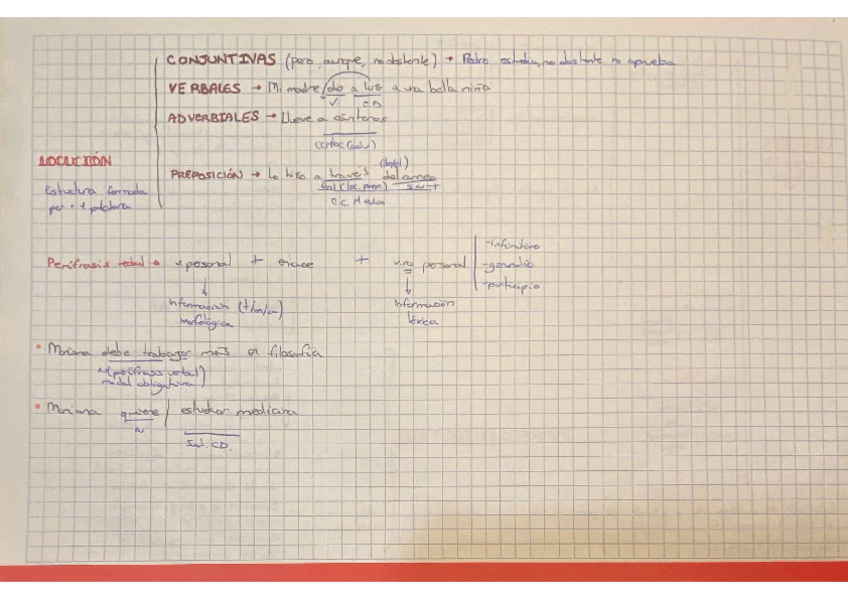 CONJUNTIVAS (pero, aunque, no obstante) → Pedro estudia, no obstante no aprueba
VERBALES → Mi madre/dio a luz a una bella niña
V. CD
ADVERBIALES → Llueve a cántaros
LOCUCIÓN
PREPOSICIÓN → Lo hizo a través del
Enl (loc. prep.) SN-T
Estructura formada
por + 1 palabra
C.C.Medio
Perífrasis verbal → v. personal + enlace + v. no personal
-infinitivo
-gerundio
-participio
información (t/m/
morfológica
información
léxica
• Mariana debe trabajar más en filosofía
N(perífrasis verbal)
modal obligativa
• Mariana quiere / estudiar medicina
N
CD.